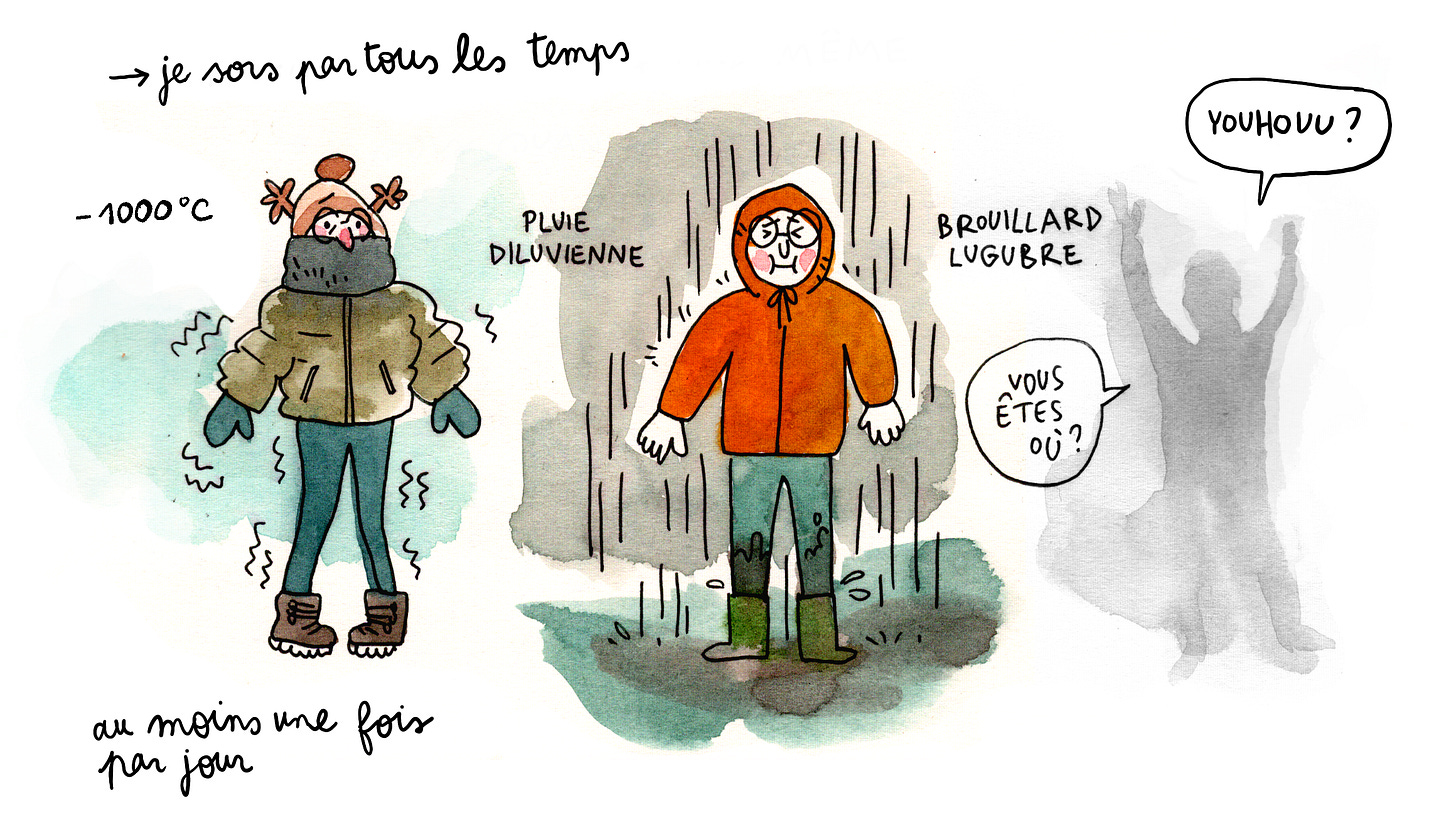 → je sors par tous les temps
-1000°C
PLUIE
DILUVIENNE
BROUILLARD
LUGUBRE
YOUHOUU ?
VOUS
ÊTES
OÙ ?
au moins une fois
par jour